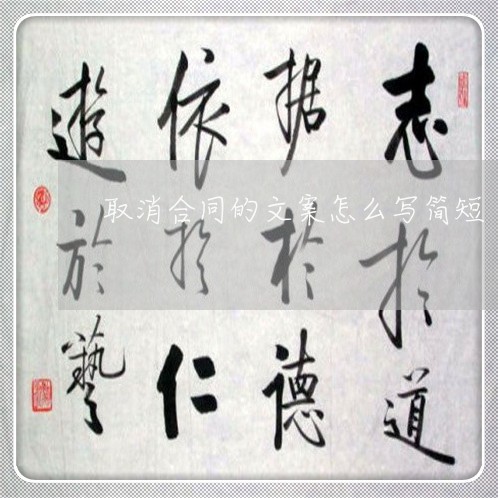 志扵道
据於德
依扵仁
遊於藝
取消合同的文案怎么写简短